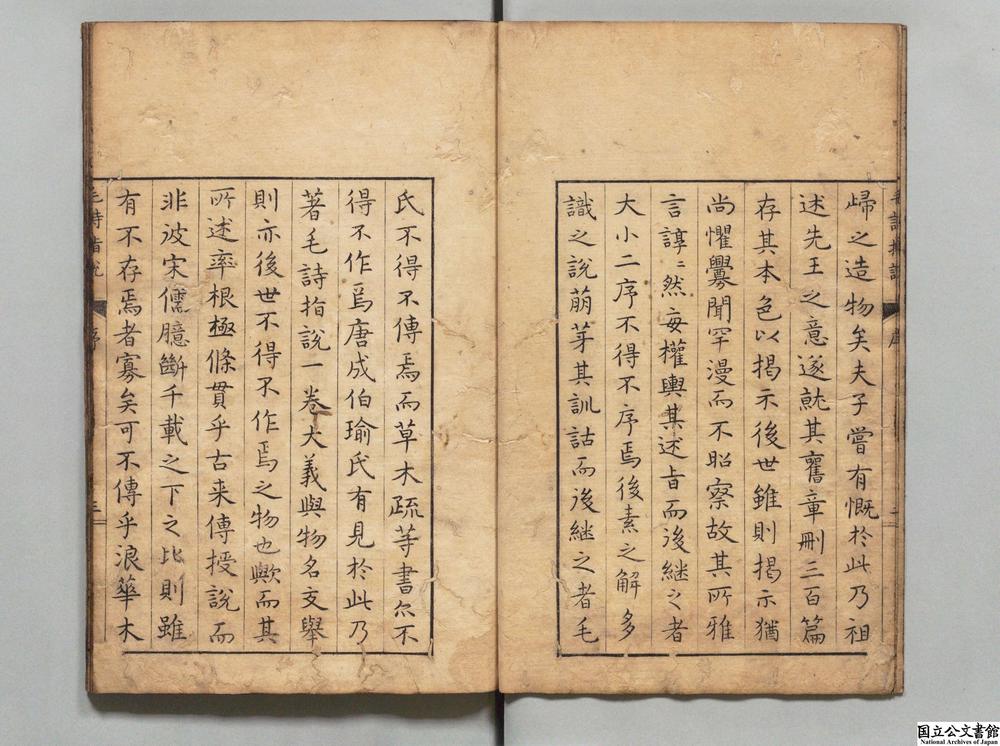 歸之造物矣夫子嘗有慨於此乃祖
述先王之意遂就其舊章刪三百篇
存其本色以揭示後世雖則揭示猶
尚懼爨聞罕漫而不昭察故其所雅
言諄〻然每權輿其述旨而後継之者
大小二序不得不序焉後素之解多
識之說萠芽其訓詁而後継之者毛
氏不得不傳焉而草木疏等書亦不
得不作焉唐成伯瑜氏有見於此乃
著毛詩指說一卷大義與物名交舉
則亦後世不得不作焉之物也歟而其
所述率根極條貫乎古来傳授說而
非彼宋儒臆斷千載之下之比則雖
有不存焉者寡矣可不傳乎浪華木
毛詩指說
序
三
国立公文書館
National Archives of Japan